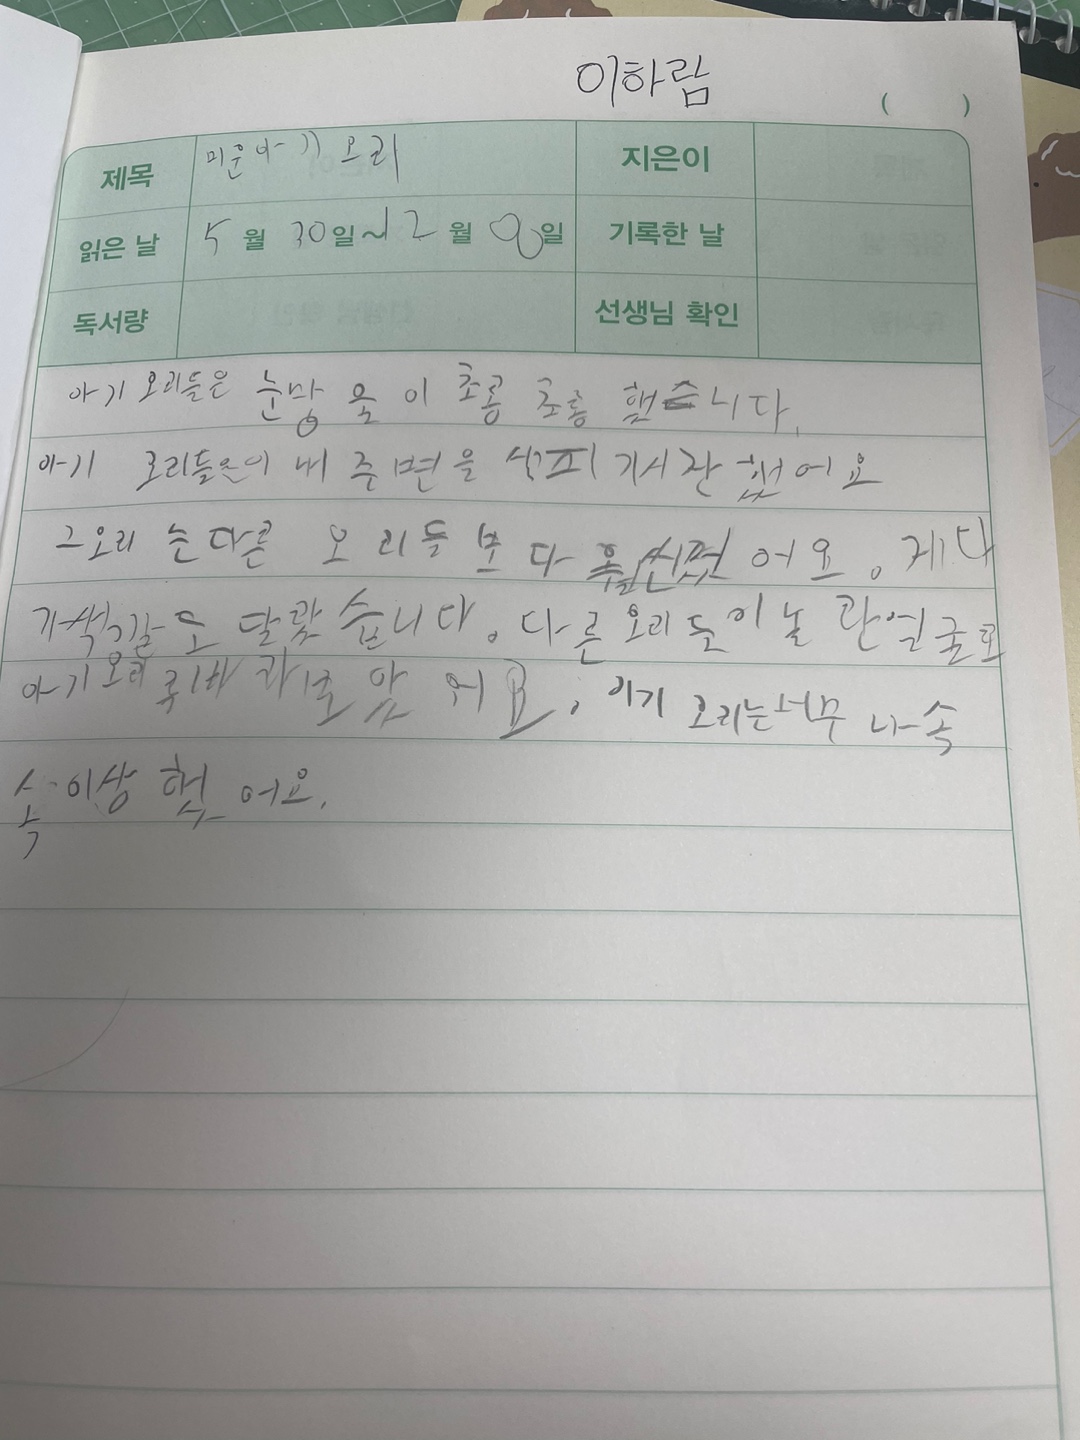 이하람
( )
제목 미운아기오리 지은이
읽은 날 5월 30일~12월 일 기록한 날
독서량 선생님 확인
아기 오리들은 눈망울이 초롱 초롱 했습니다.
아기 오리들은이 내 주변을 기시작 했어요
그오리 는다른 오 리 들 보 다 훨씬컸 어 요. 게다
가색깔도 달랐습니다. 다른 오리들이놀 란얼굴로
아기오리 를바 라보 았 어요. 아기 오리는너무 나속
속이상 했 어요.